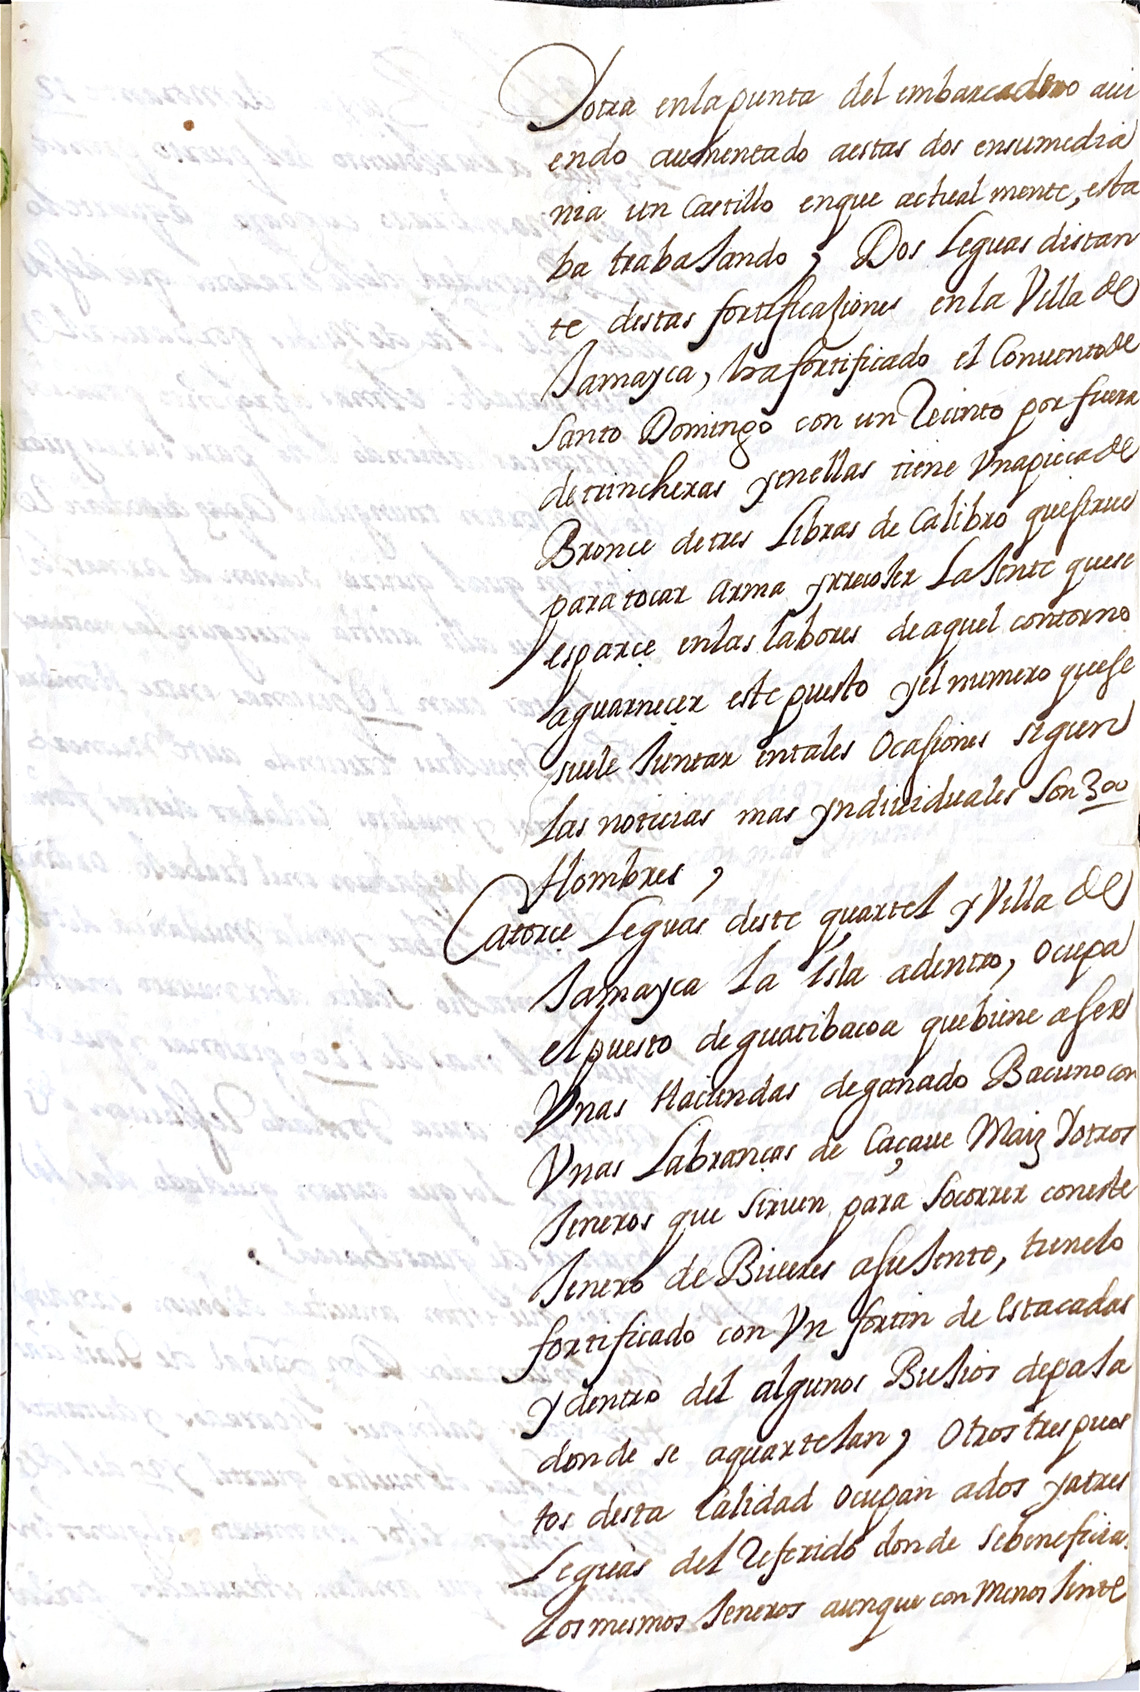 Yotra enla punta del embarcadero aui
endo aumentado aestas dos ensumedia
nia un Castillo enque actual mente, esta
ba trabaJando, Dos Leguas distan
te destas fortificaçiones en la Villa de
Jamayca, ha fortificado el Conuento de
Santo Domingo con un Recinto por fuera
de trincheras yenellas tiene Vna pieca de
Bronce de tres Libras de Calibro quesirue
para tocar arma yrrecoJer LaJente quese
esparce enlas labores de aquel contorno
aguarnecer este puesto yel numero quese
suele Juntar entales Ocasiones sigun
Las noticias mas yndiuiduales son 300
Hombres,
Catorce Leguas deste quartel y Villa de
Jamayca La Isla adentro, ocupa
el puesto de guatibacoa quebiene aser
Vnas Haciendas deganado Bacuno con
Vnas Labranças de Caçaue Maiz Yotros
Jeneros que siruen para Socorrer coneste
Jenero de Biueres asuJente, tienelo
fortificado con Vn fortin de Estacadas
y dentro del algunos BuJios depaJa
donde se aquartelan, Otros tres pues
tos desta calidad ocupan ados yatres
Leguas del Referido donde sebeneficia
Los mesmos Jeneros aunque con menos Jente